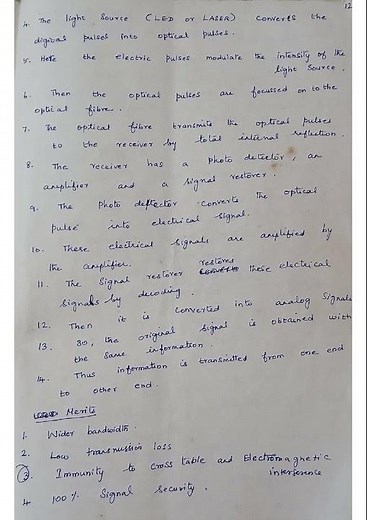 12
4. The light Source (LED or LASER) converts the
digital pulses into optical pulses.
5. Here the electric pulses modulate the intensity of the
light Source.
6. Then the optical pulses are focussed on to the
optical fibre.
7. The optical fibre transmits the optical pulses
to the receiver by total internal reflection.
8. The receiver has a photo detector, an
amplifier and a signal restorer.
9. The photo deflector converts the optical
pulse into electrical signal.
10. These electrical signals are amplified by
the amplifier.
11. The Signal restorer restores these electrical
signals by decoding.
12. Then it is converted into analog signals
13. So, the original signal is obtained with
the same information.
14. Thus information is transmitted from one end
to other end.
Merits
1. Wider bandwidth.
2. Low transmission loss
3. Immunity to cross table and Electromagnetic
interference
4. 100% Signal security.